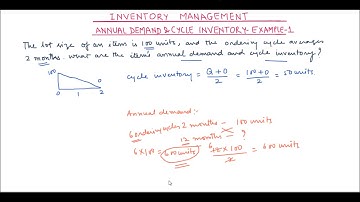 INVENTORY MANAGEMENT
ANNUAL DEMAND & CYCLE INVENTORY - EXAMPLE-1
The lot size of an item is 100 units, and the ordering cycle averages
2 months. what are the item's annual demand and cycle inventory?
100
0
0 1 2
cycle inventory = Q+0/2 = 100+0/2 = 50 units.
Annual demand:-
6 ordering cycles 2 months - 100 units
12 months - ?
6 x 100 = 600 units
12 x 100/2 = 600 units